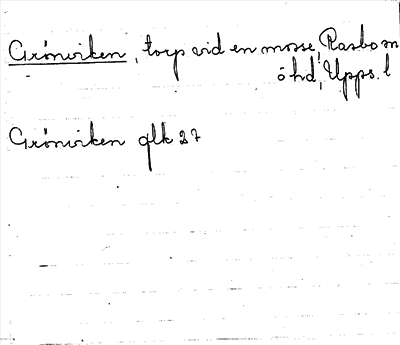 Grönviken, torp vid en mosse, Rasbo sn
ö hd, Upps. l
Grönviken glk 27